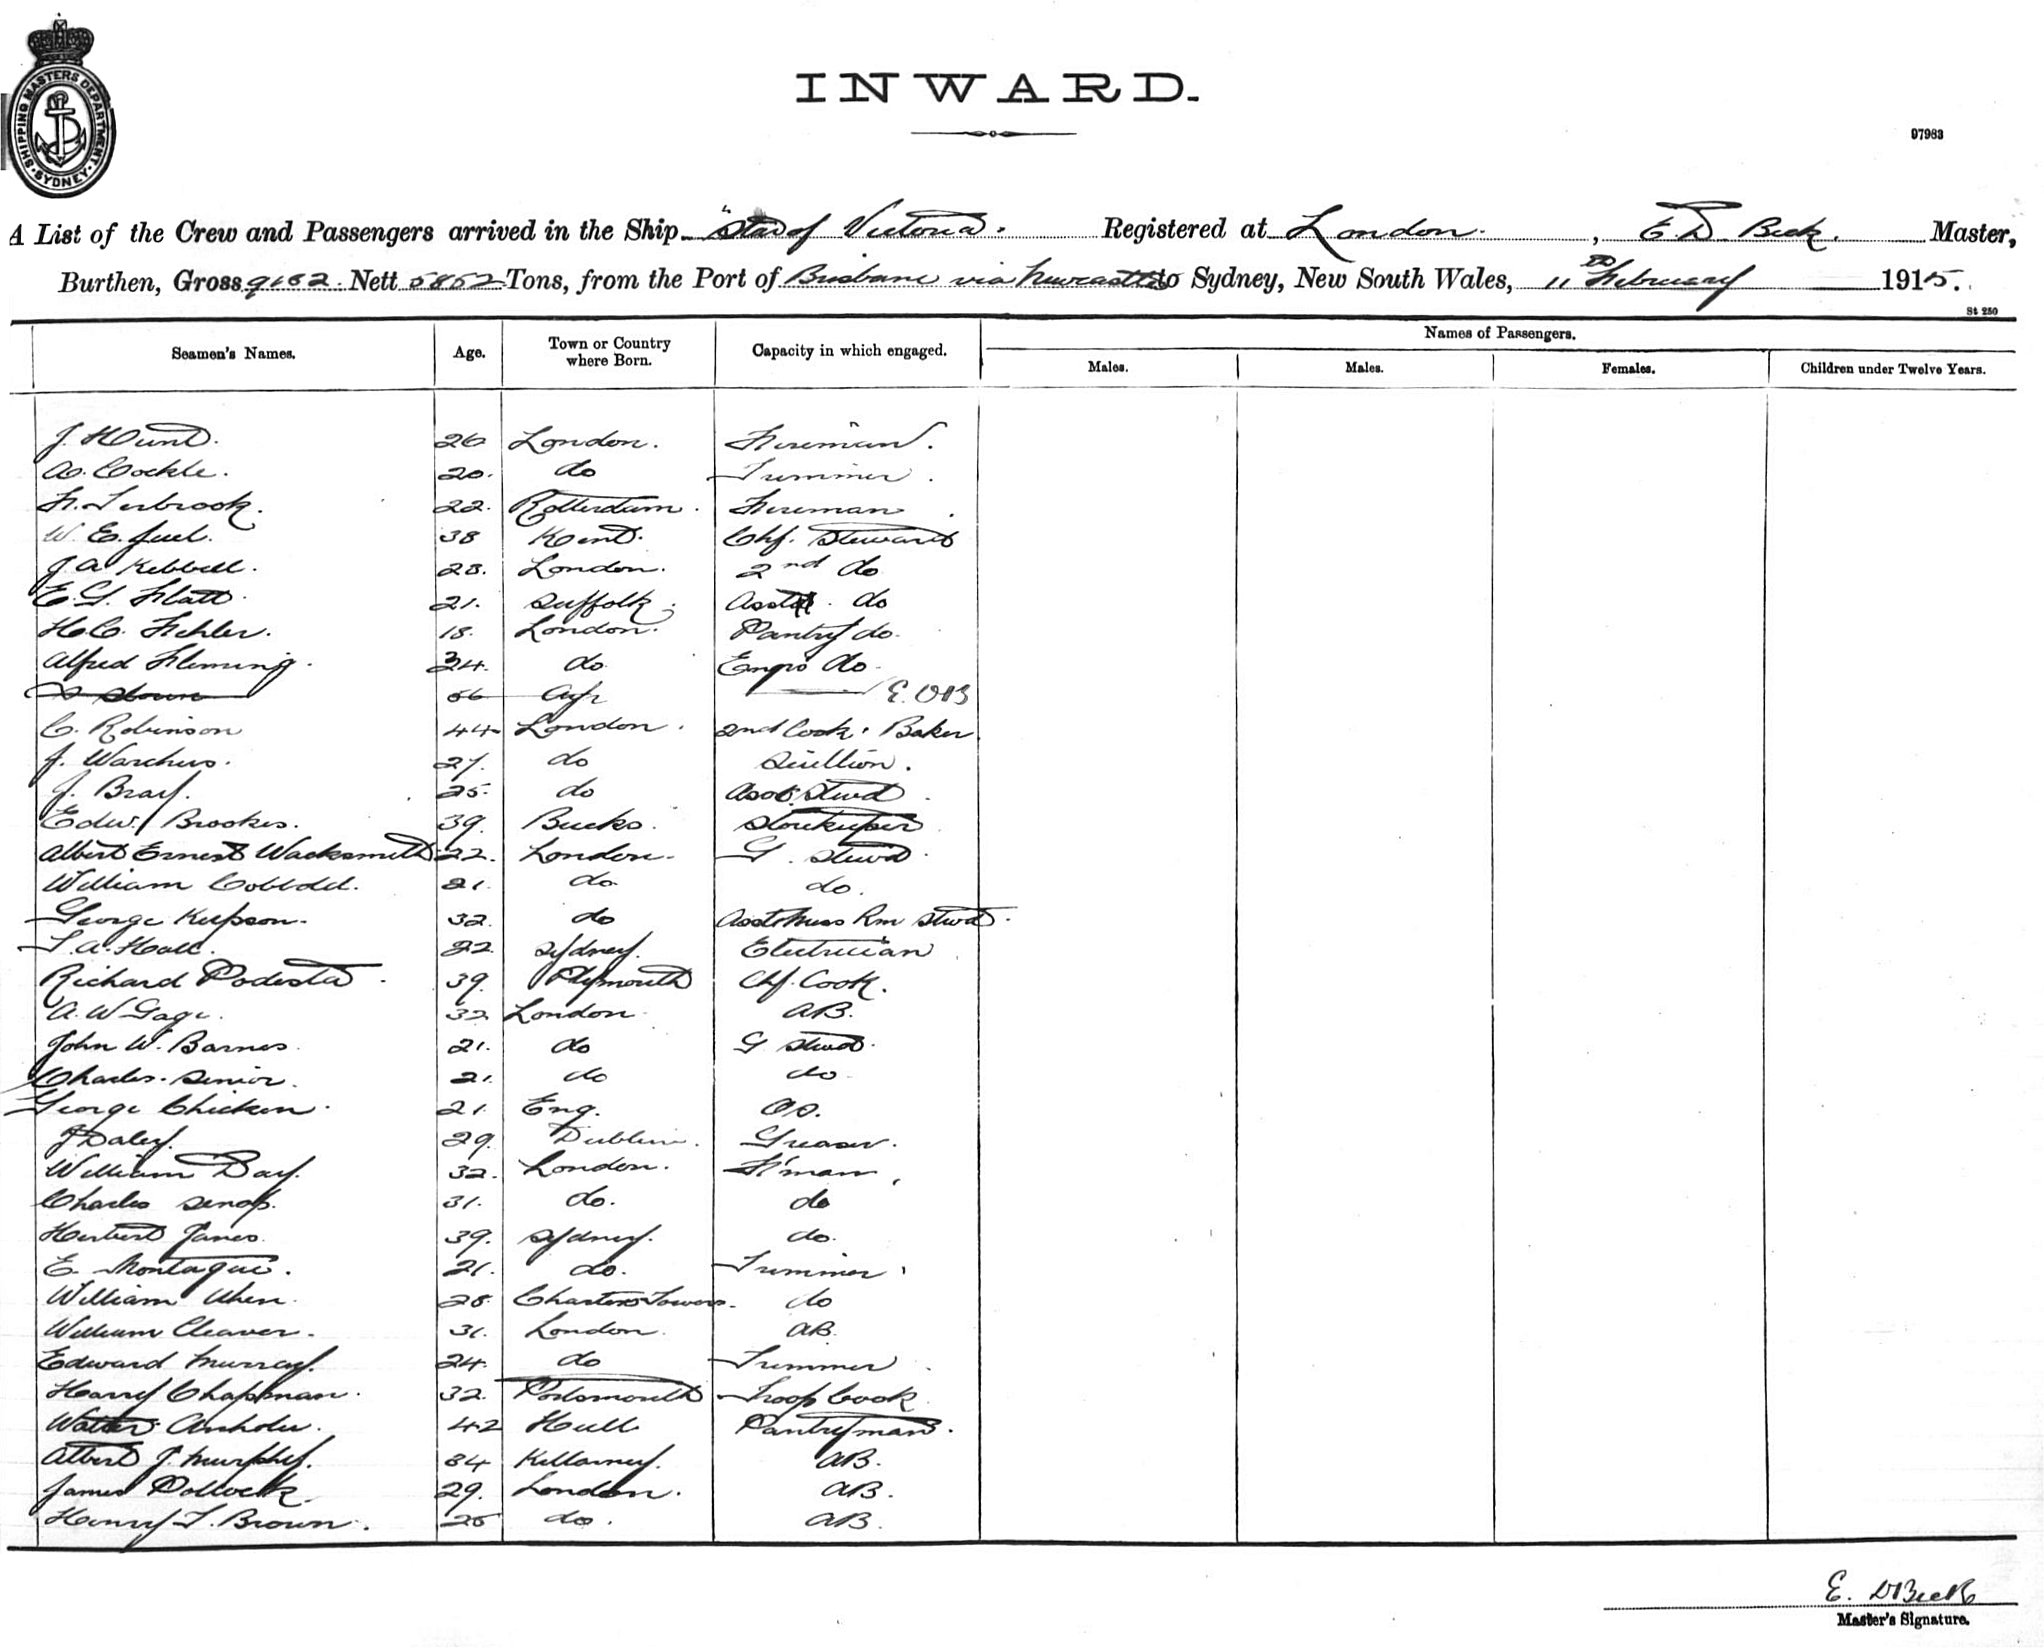 SHIPPING MASTERS DEPARTMENT SYDNEY
INWARD.
97983
A List of the Crew and Passengers arrived in the Ship "Star of Victoria. Registered at London. , E. D. Beck. Master,
Burthen, Gross 9152. Nett 5852 Tons, from the Port of Brisbane via Newcastle to Sydney, New South Wales, 11th February 1915.
St 250
Seamen's Names. Age. Town or Country where Born. Capacity in which engaged. Names of Passengers.
Males. Males. Females. Children under Twelve Years.
J. Hunt. 26 London. Fireman.
A. Cockle. 20. do Trimmer.
22. Rotterdam. Fireman.
W. E. Juel. 38 Kent. Chf. Steward
J. A. Kebbell. 28. London. 2nd do
E. G. Flatt. 21. Suffolk. Asst. do
H. C. 18. London. Pantry do.
Alfred Fleming. 34. do Engrs do.
56 Ayr E. DB
C. Robinson 44 London. 2nd Cook & Baker
J. 27. do Scullion.
J. Bray. 25. do Asst. Stwd.
Edw. Brookes. 39. Bucks. Storekeeper
Albert Ernest Wacksmith 22. London. G. Stwd.
William Cobbold. 21. do do.
George 32. do Asst Mess Rm Stwd.
T. A. Hall. 22. Sydney. Electrician
Richard Podesta. 39. Plymouth Chf. Cook.
A. W Gage. 32 London. AB.
John W. Barnes. 21. do G Stwd.
Charles. Senior. 21. do do.
George Chicken. 21. Eng. OS.
J Daley. 29. Dublin. Greaser.
William Day. 32. London. F'man.
Charles 31. do. do
Herbert Janes. 39. Sydney. do.
E. Montague. 21. do. Trimmer.
William 28. Charters Towers. do
William Cleaver. 31. London. AB.
Edward Murray. 24. do Trimmer.
Harry Chapman. 32. Portsmouth Troop Cook.
Walter 42 Hull Pantryman.
Albert J. Murphy. 34 Killarney. AB.
James Pollock. 29. London. AB.
Henry T. Brown. 25 do. AB.
E. D Beck
Master's Signature.